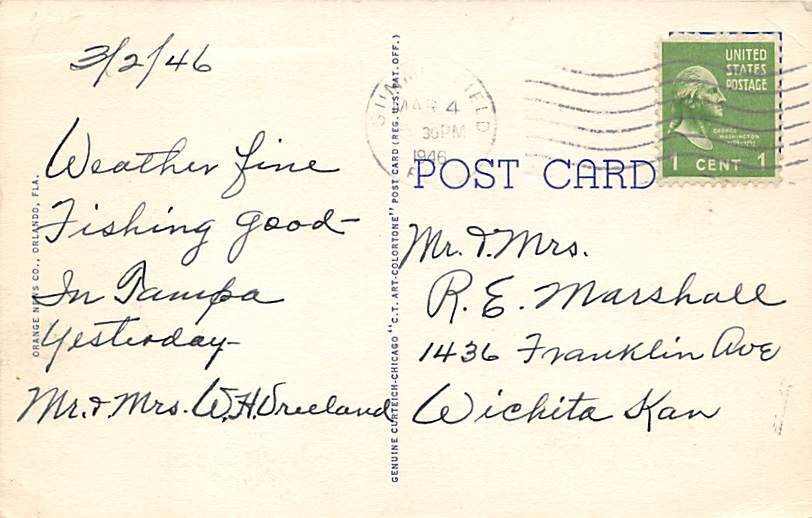 3/2/46
Weather fine
Fishing good-
In Tampa
Yesterday-
Mr. & Mrs. W.H. Vreeland
ORANGE NEWS CO., ORLANDO, FLA.
GENUINE CURTEICH-CHICAGO "C.T. ART-COLORTONE" POST CARD (REG. U.S. PAT. OFF.)
MAR 4
30 PM
1946
UNITED
STATES
POSTAGE
GEORGE
WASHINGTON
1 CENT 1
POST CARD
Mr. & Mrs.
R. E. Marshall
1436 Franklin Ave
Wichita Kan